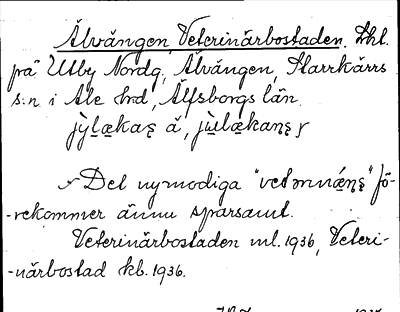 Älvängen, Veterinärbostaden. Lht.
på Utby Nordg, Älvängen, Starrkärrs
s:n i Ale hrd, Älfsborgs län.
å,
Det nymodiga fö-
-rekommer ännu sparsamt.
Veterinärbostaden ml. 1936, Veteri-
-närbostad kb. 1936.